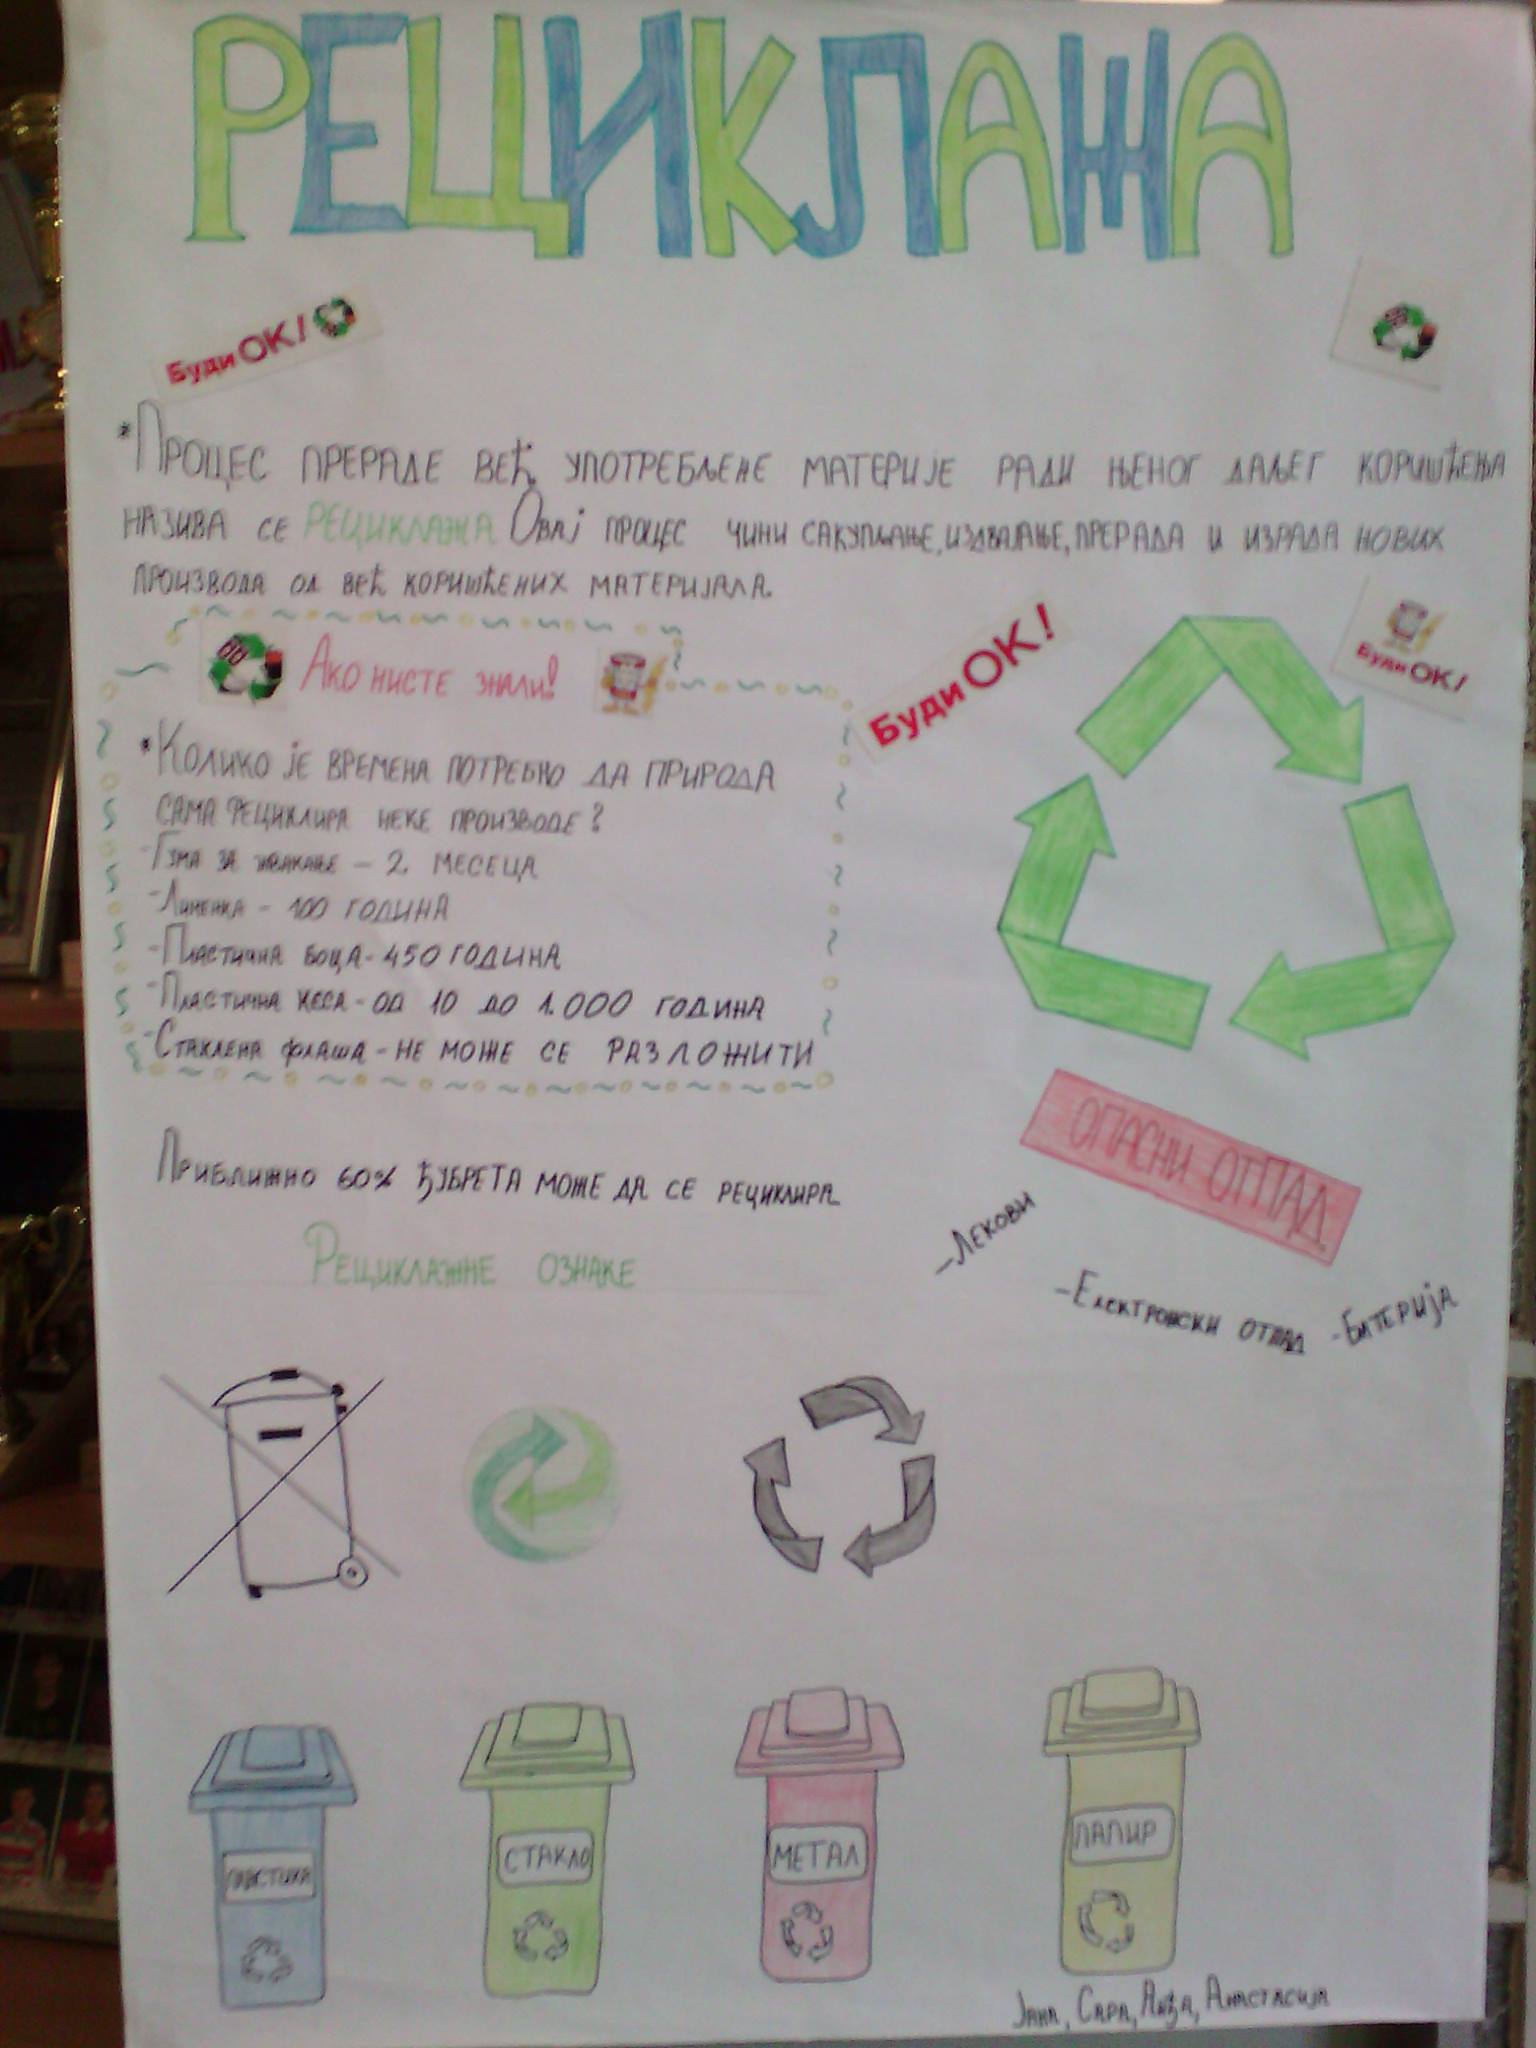 РЕЦИКЛАЖА
Буди ОК!
*Процес прераде већ употребљене материје ради њеног даљег коришћења
назива се РЕЦИКЛАЖА Овај процес чини сакупљање, издвајање, прерада и израда нових
производа од већ коришћених материјала.
Ако нисте знали!
Буди ОК!
Буди ОК!
*Колико је времена потребно да природа
сама рециклира неке производе?
-Гума за жвакање - 2 месеца
-Лименка - 100 година
-Пластична боца - 450 година
-Пластична кеса - од 10 до 1.000 година
-Стаклена флаша - не може се разложити
ОПАСНИ ОТПАД
-Лекови
-Електронски отпад
-Батерија
Приближно 60% ђубрета може да се рециклира
Рециклажне ознаке
ПЛАСТИКА
СТАКЛО
МЕТАЛ
ПАПИР
Јана, Сара, Анђа, Анастасија